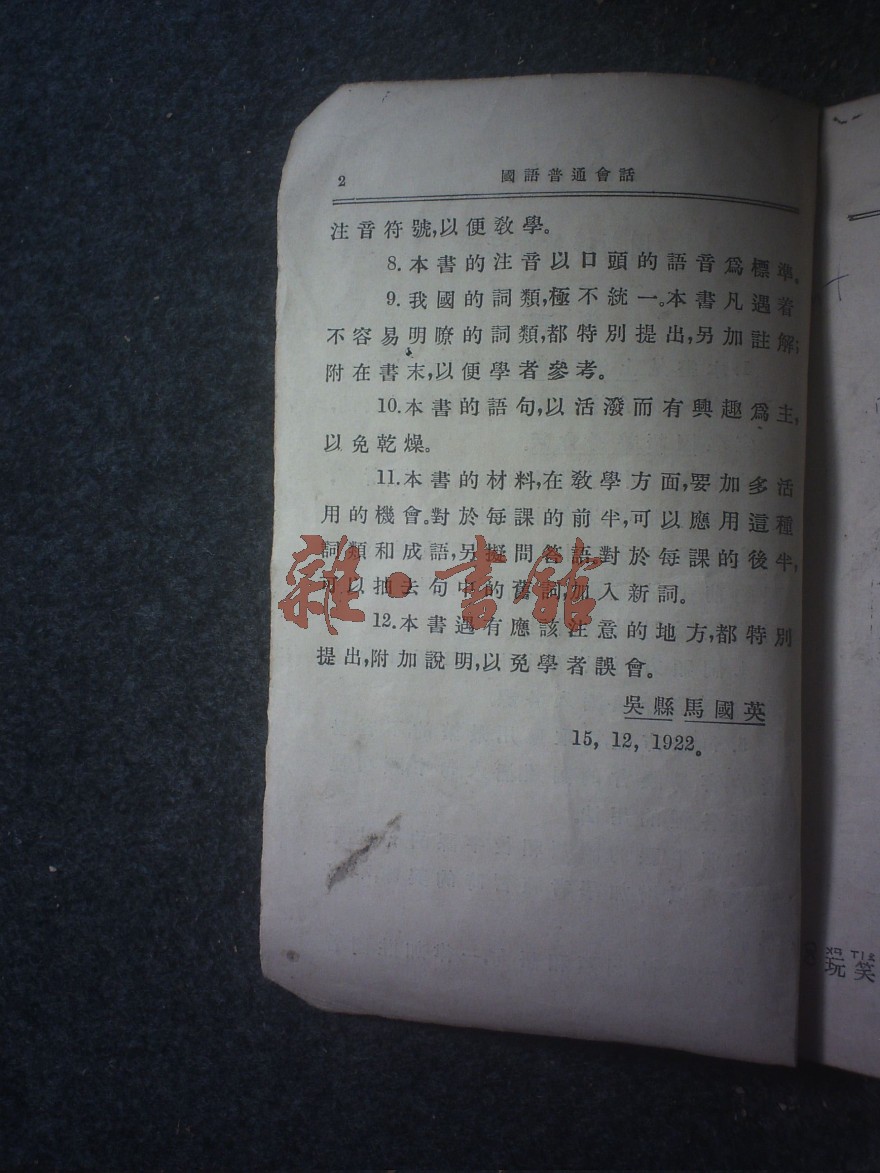 2 國語普通會話
注音符號,以便敎學。
8.本書的注音以口頭的語音爲標準。
9.我國的詞類,極不統一。本書凡遇着
不容易明瞭的詞類,都特別提出,另加註解;
附在書末,以便學者參考。
10.本書的語句,以活潑而有興趣爲主,
以免乾燥。
11.本書的材料,在敎學方面,要加多活
用的機會。對於每課的前半,可以應用這種
詞類和成語,另擬問答語,對於每課的後半,
可以抽去句中的舊詞,加入新詞。
12.本書遇有應該注意的地方,都特別
提出,附加說明,以免學者誤會。
吳縣馬國英
15, 12, 1922。
雜·書館
ㄨㄢ ㄒㄧㄠ
玩笑